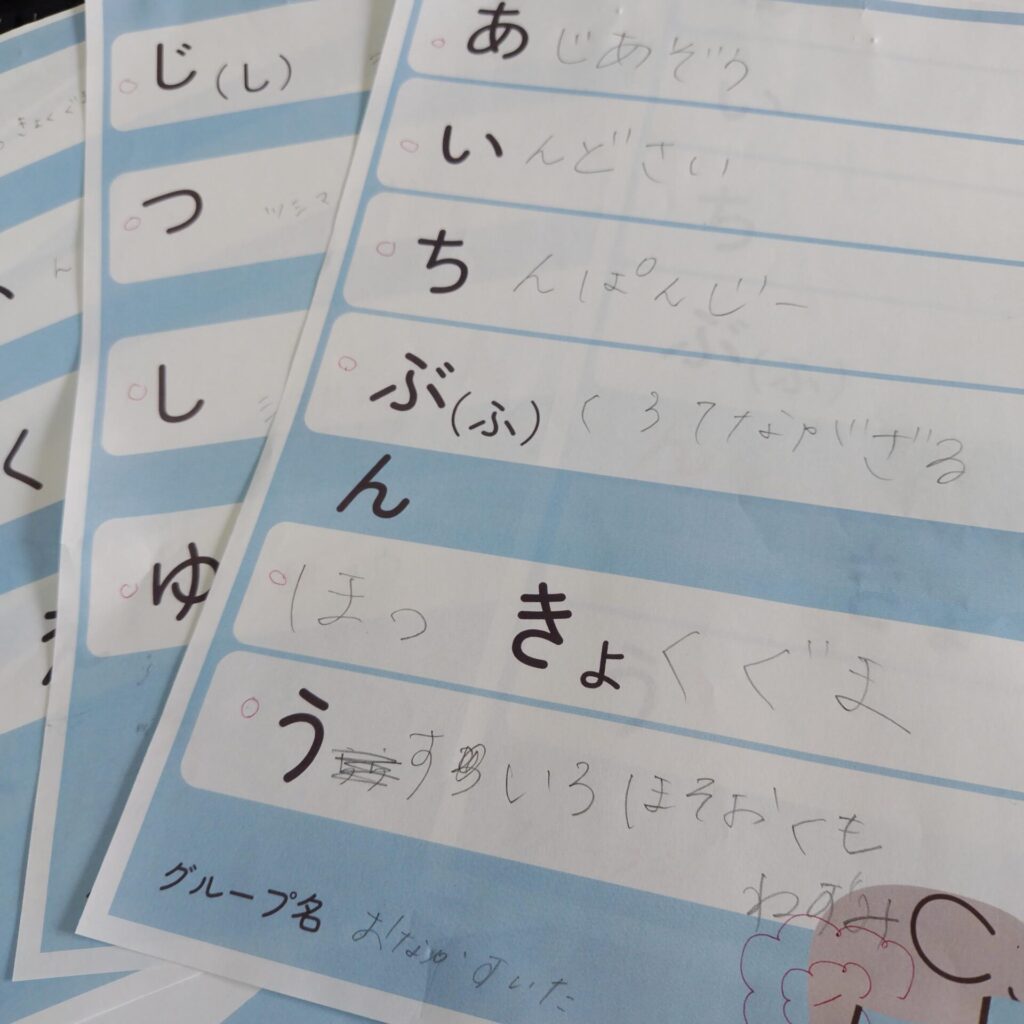 あじあぞう
いんどさい
ちんぱんじー
ぶ(ふ)くろてながざる
ん
ほっきょくぐま
うすいろほそおくも
ねずみ
グループ名 おなかすいた
じ(し)
つ ツシマ
し シ
ゆ
きょくぐ
ん
く